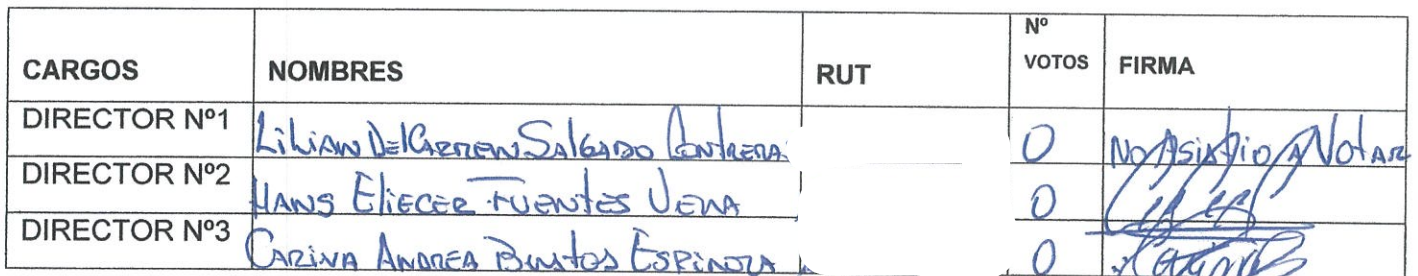 CARGOS NOMBRES RUT Nº VOTOS FIRMA
DIRECTOR Nº1 Lilian Del Carmen Salgado Contrera 0 No Asistio A Votar
DIRECTOR Nº2 Hans Eliecer Fuentes Vera 0
DIRECTOR Nº3 Carina Andrea Bustos Espinoza 0